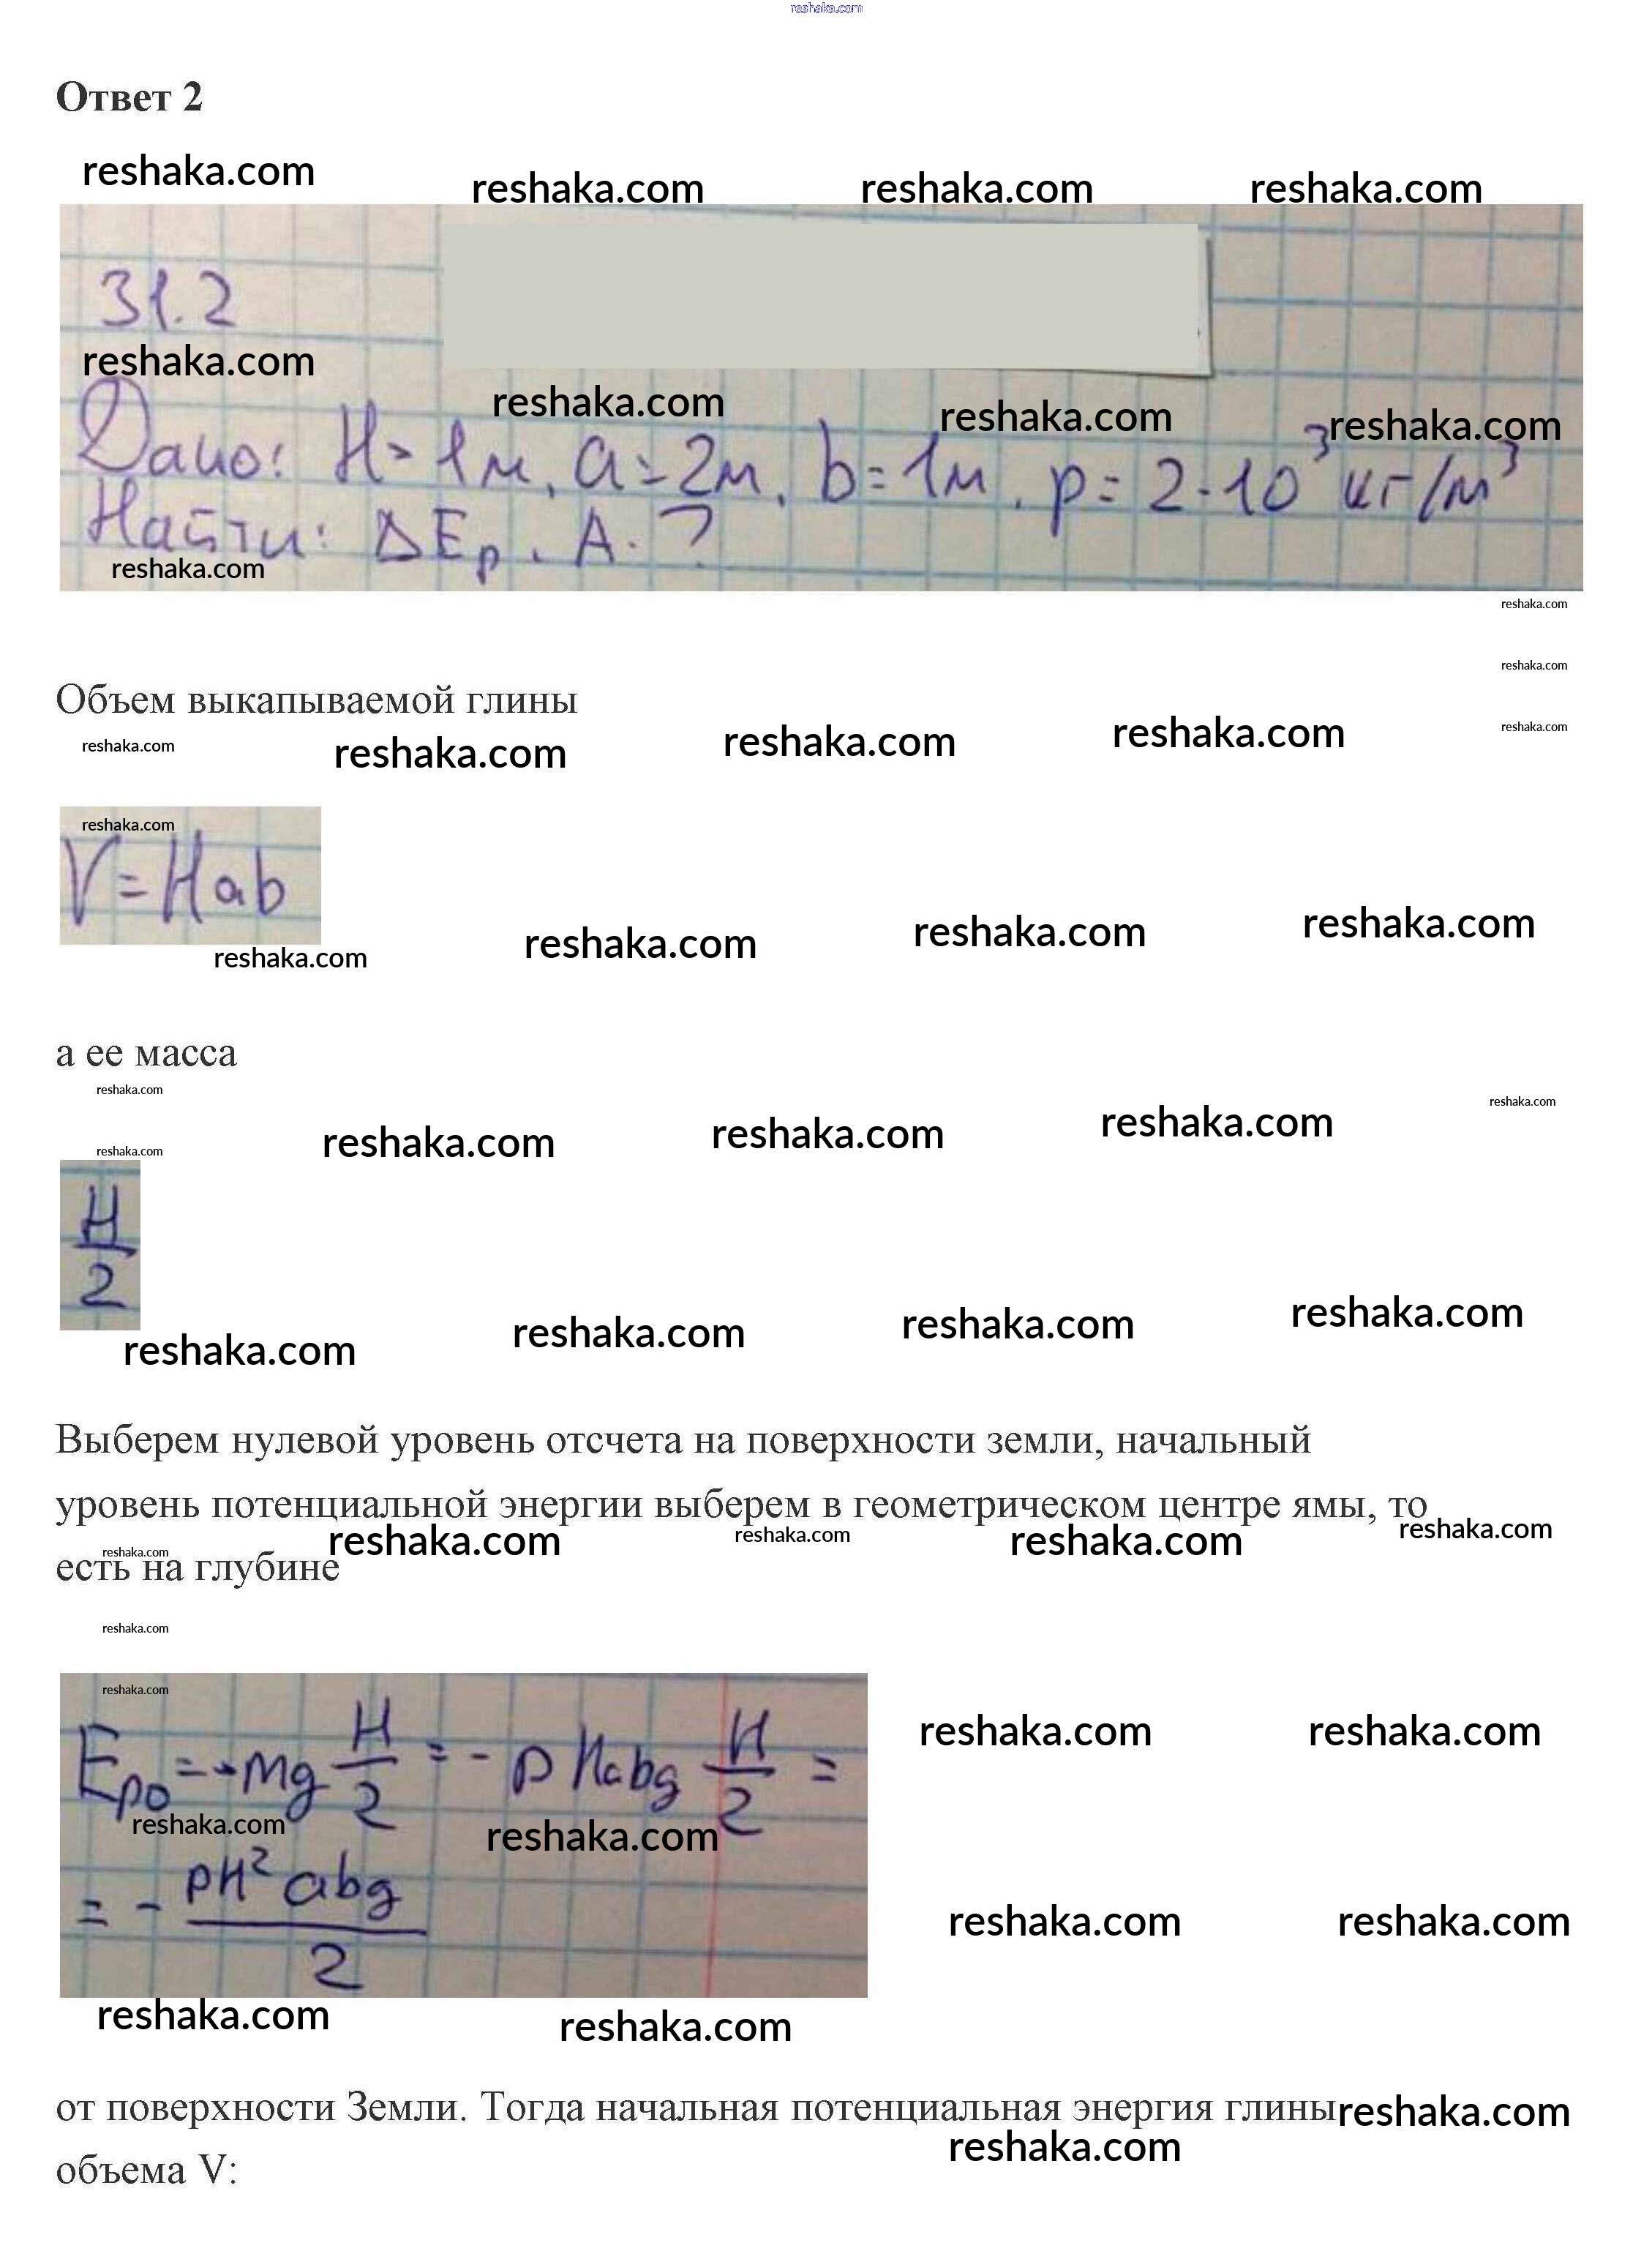 reshaka.com
Ответ 2
reshaka.com reshaka.com reshaka.com reshaka.com
31.2
reshaka.com
reshaka.com reshaka.com reshaka.com
Дано: H = 1м, a = 2м, b = 1м, p = 2·10³ кг/м³
Найти: ΔEp, A - ?
reshaka.com
reshaka.com
reshaka.com
Объем выкапываемой глины
reshaka.com reshaka.com reshaka.com reshaka.com reshaka.com
reshaka.com
V = Hab
reshaka.com reshaka.com reshaka.com reshaka.com
а ее масса
reshaka.com reshaka.com
reshaka.com reshaka.com reshaka.com reshaka.com
H/2
reshaka.com reshaka.com reshaka.com reshaka.com
Выберем нулевой уровень отсчета на поверхности земли, начальный
уровень потенциальной энергии выберем в геометрическом центре ямы, то
reshaka.com reshaka.com reshaka.com reshaka.com reshaka.com
есть на глубине
reshaka.com
reshaka.com
Ep0 = -mg H/2 = - pHabg H/2 =
reshaka.com reshaka.com
reshaka.com reshaka.com
= - pH² abg/2
reshaka.com reshaka.com
reshaka.com reshaka.com
от поверхности Земли. Тогда начальная потенциальная энергия глины reshaka.com
reshaka.com
объема V: